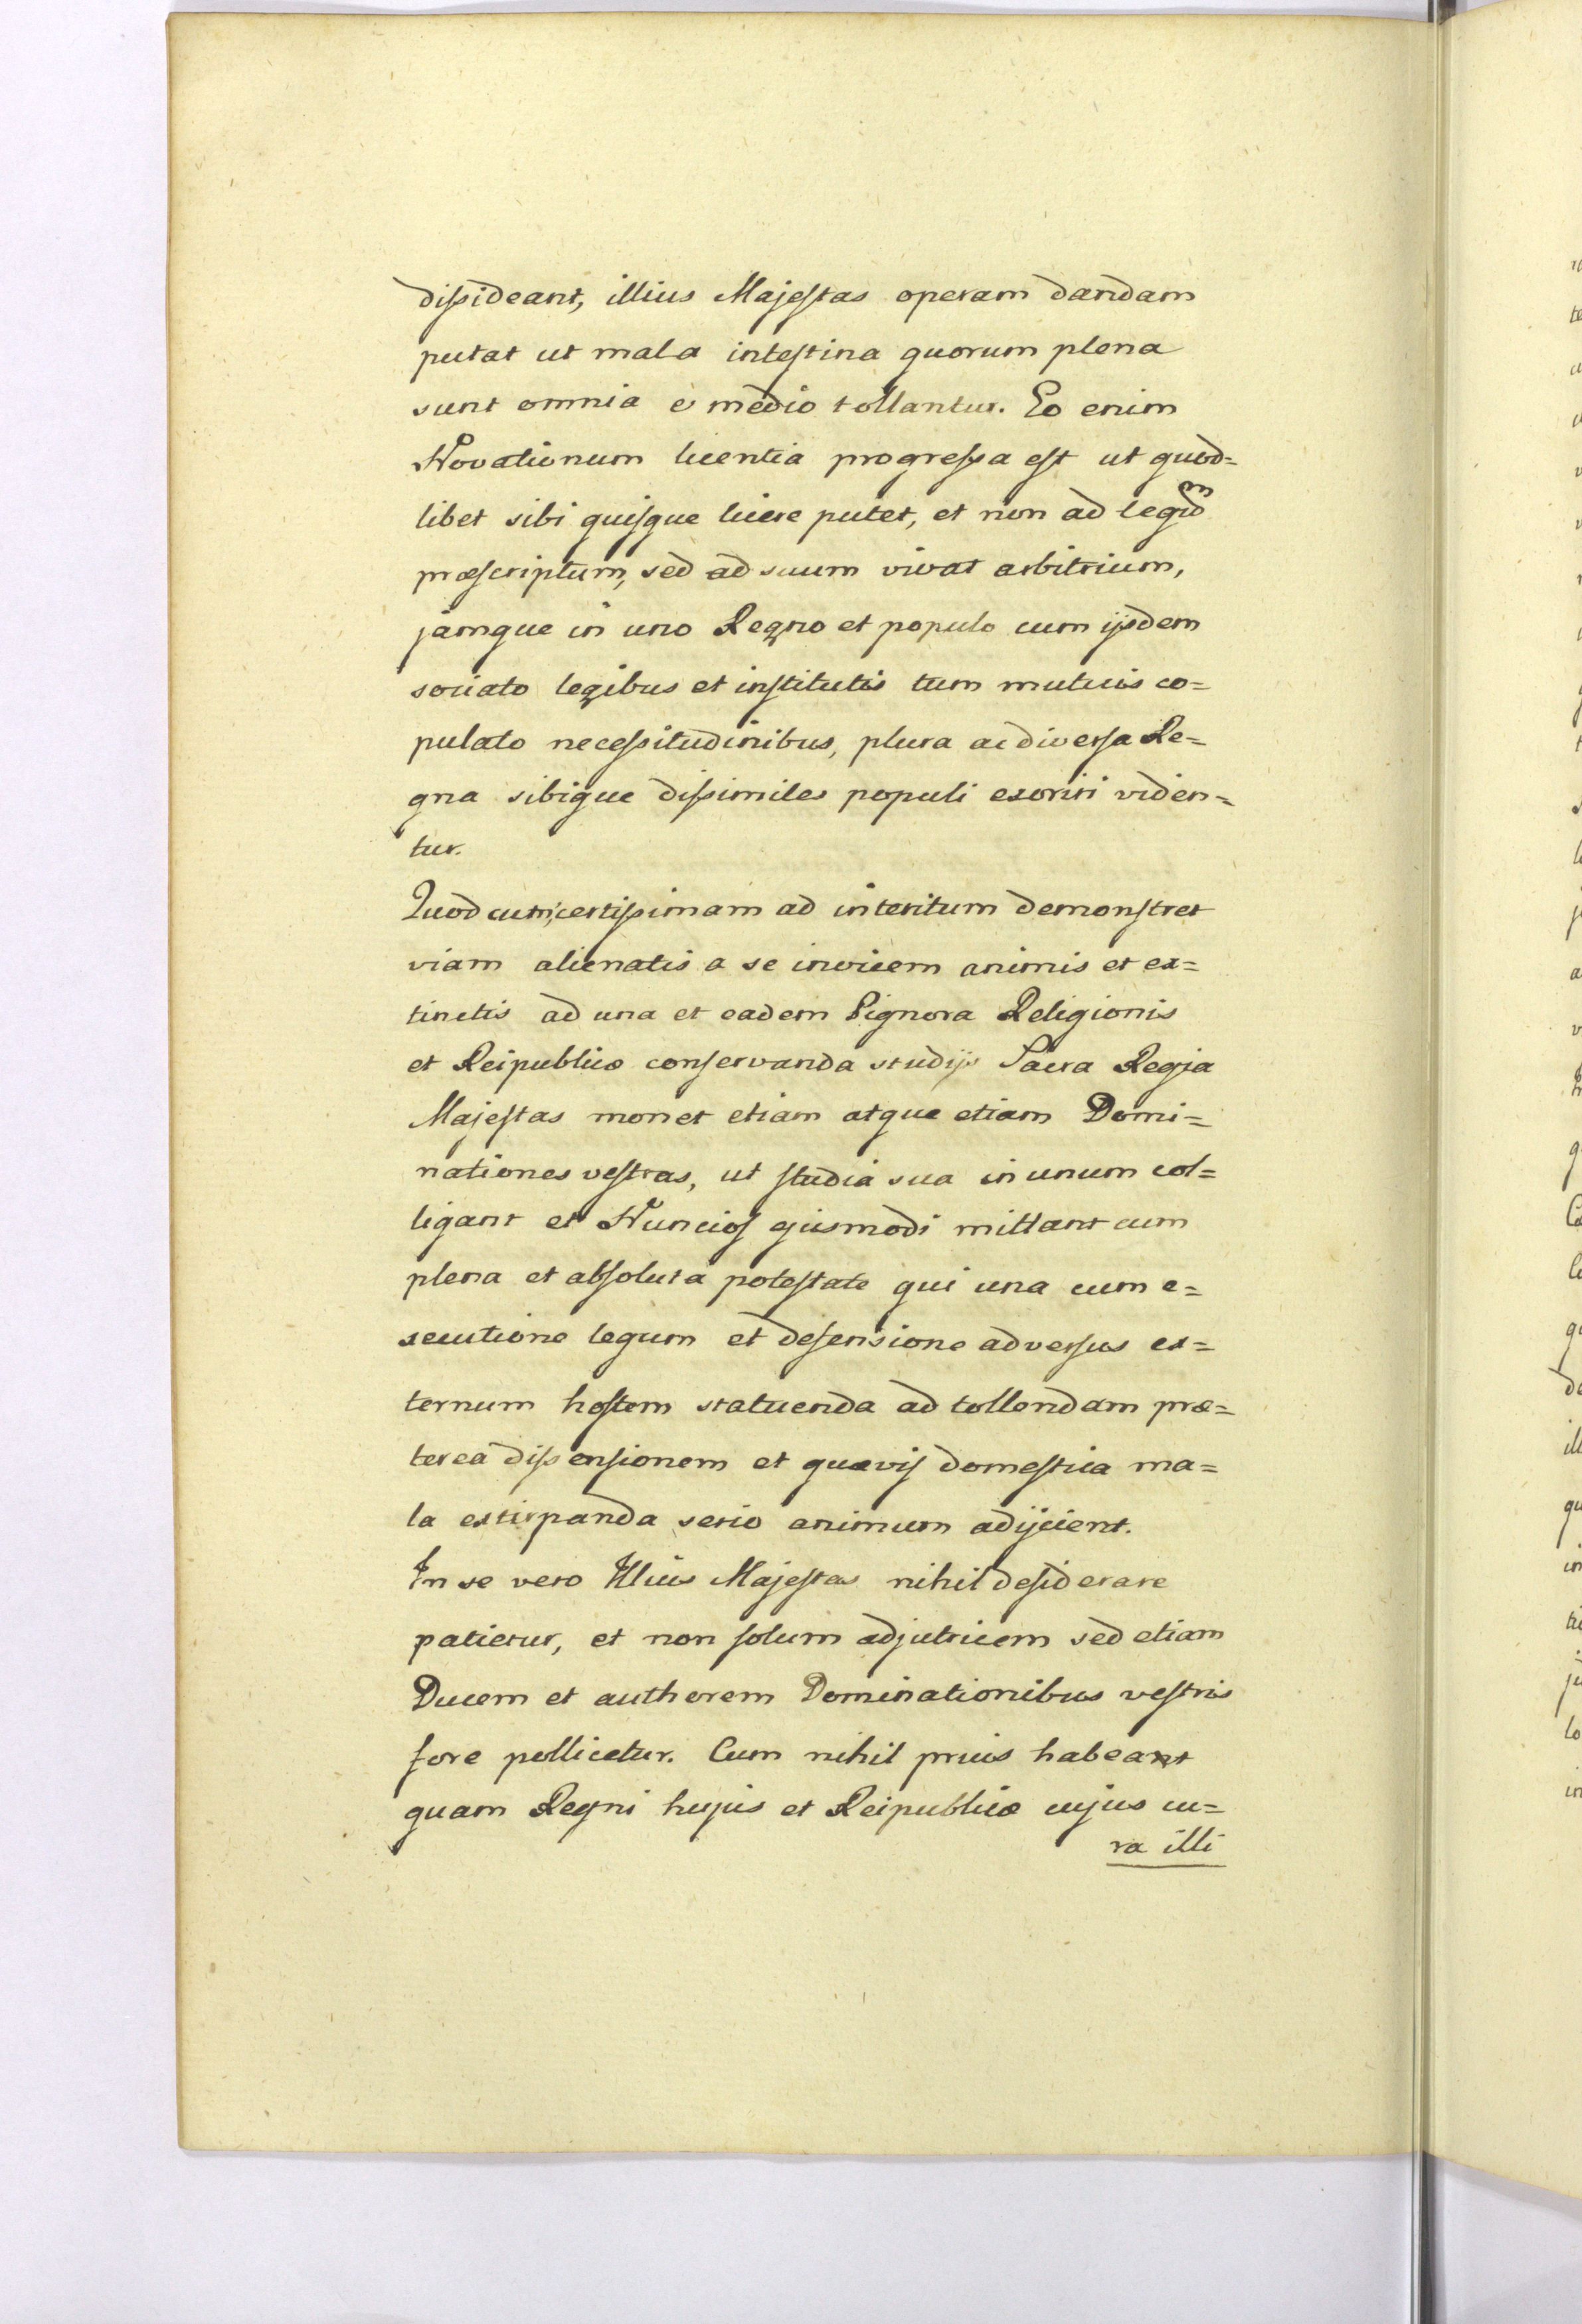 dissideant, illius Majestas operam dandam
putat ut mala intestina quorum plena
sunt omnia e medio tollantur. Eo enim
Novationum licentia progressa est ut quod=
libet sibi quisque licere putet, et non ad legum
præscriptum, sed ad suum vivat arbitrium,
jamque in uno Regno et populo cum ijsdem
sociato legibus et institutis tum mutuis co=
pulato necessitudinibus, plura ac diversa Re=
gna sibique dissimiles populi exoriri viden=
tur.
Quod cum certissimam ad interitum demonstret
viam alienatis a se invicem animis et ex=
tinctis ad una et eadem Pignora Religionis
et Reipublicæ conservanda studijs Sacra Regia
Majestas monet etiam atque etiam Domi=
nationes vestras, ut studia sua in unum col=
ligant et Nuncios ejusmodi mittant cum
plena et absoluta potestate qui una cum e=
xecutione legum et defensione adversus ex=
ternum hostem statuenda ad tollendam præ=
terea dissensionem et quævis domestica ma=
la extirpanda serio animum adijcient.
In se vero Illius Majestas nihil desiderare
patietur, et non solum adjutricem sed etiam
Ducem et authorem Dominationibus vestris
fore pollicetur. Cum nihil prius habeant
quam Regni hujus et Reipublicæ cujus cu=
ra illi